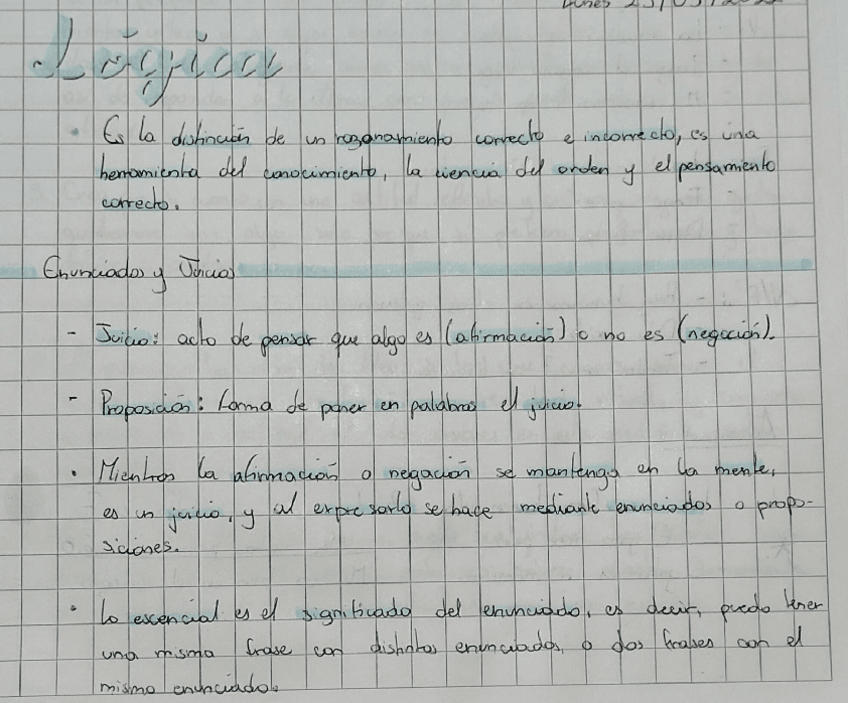 Lunes 23/05/202
Lógica
• Es la distinción de un razonamiento correcto e incorrecto, es una
herramienta del conocimiento, la ciencia del orden y el pensamiento
correcto.
Enunciados y Juicios
- Juicio: acto de pensar que algo es (afirmación) o no es (negación).
- Proposición: Forma de poner en palabras el juicio.
• Mientras la afirmación o negación se mantenga en la mente,
es un juicio, y al expresarlo se hace mediante enunciados o propo-
siciones.
• Lo escencial es el significado del enunciado, es decir, puedo tener
una misma frase con distintos enunciados, o dos frases con el
mismo enunciado.